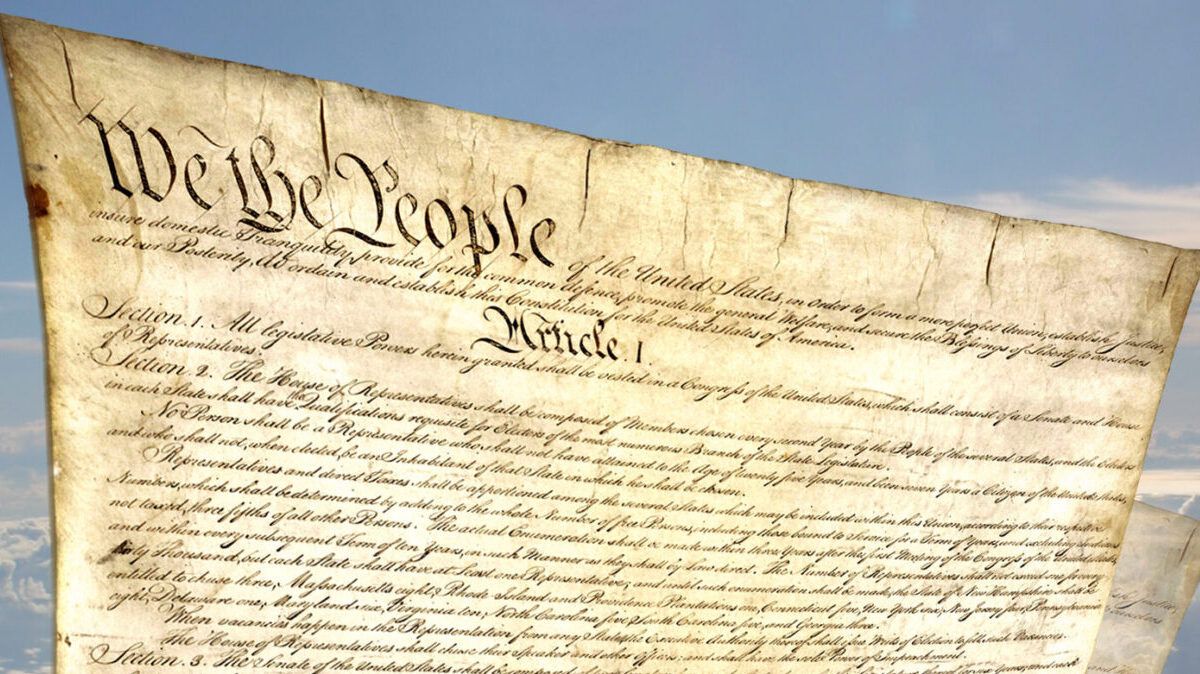 We the People of the United States, in order to form a more perfect Union, establish Justice,
insure domestic Tranquility, provide for the common defence, promote the general Welfare, and secure the Blessings of Liberty to ourselves
and our Posterity, do ordain and establish this Constitution for the United States of America.
Article. I.
Section. 1. All legislative Powers herein granted shall be vested in a Congress of the United States, which shall consist of a Senate and House
of Representatives.
Section. 2. The House of Representatives shall be composed of Members chosen every second Year by the People of the several States, and the Electors
in each State shall have the Qualifications requisite for Electors of the most numerous Branch of the State Legislature.
No Person shall be a Representative who shall not have attained to the Age of twenty five Years, and been seven Years a Citizen of the United States,
and who shall not, when elected, be an Inhabitant of that State in which he shall be chosen.
Representatives and direct Taxes shall be apportioned among the several States which may be included within this Union, according to their respective
Numbers, which shall be determined by adding to the whole Number of free Persons, including those bound to Service for a Term of Years, and excluding Indians
not taxed, three fifths of all other Persons. The actual Enumeration shall be made within three Years after the first Meeting of the Congress of the United States,
and within every subsequent Term of ten Years, in such Manner as they shall by Law direct. The Number of Representatives shall not exceed one for every
thirty Thousand, but each State shall have at Least one Representative; and until such enumeration shall be made, the State of New Hampshire shall be
entitled to chuse three, Massachusetts eight, Rhode Island and Providence Plantations one, Connecticut five, New York six, New Jersey four, Pennsylvania
eight, Delaware one, Maryland six, Virginia ten, North Carolina five, South Carolina five, and Georgia three.
When vacancies happen in the Representation from any State, the Executive Authority thereof shall issue Writs of Election to fill such Vacancies.
The House of Representatives shall chuse their Speaker and other Officers; and shall have the sole Power of Impeachment.
Section. 3. The Senate of the United States shall be composed